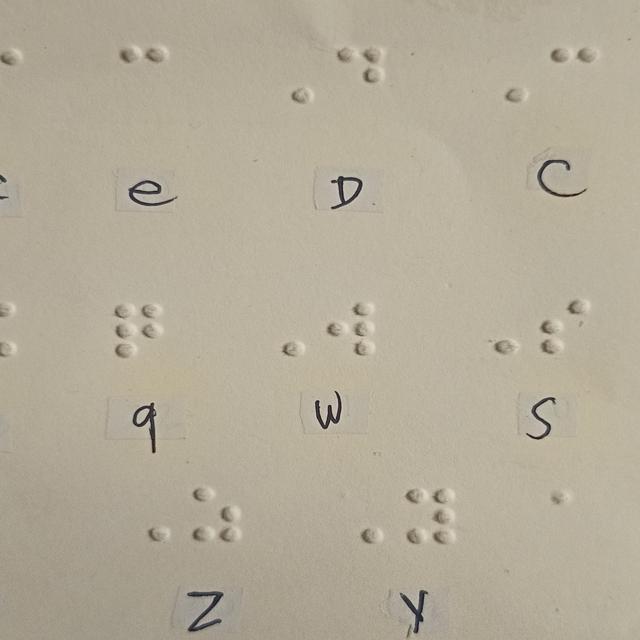 e D C
q W S
Z y